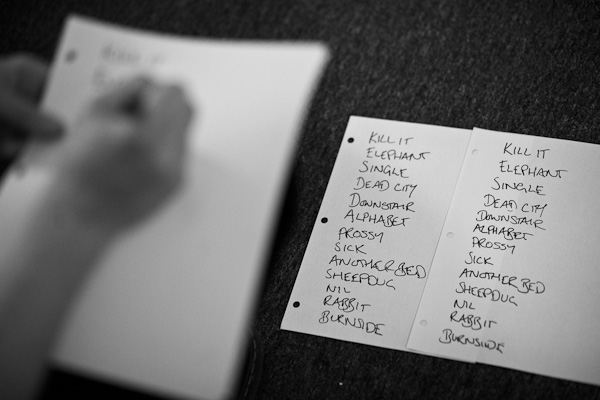 KILL IT
KILL IT
ELEPHANT
SINGLE
DEAD CITY
DOWNSTAIR
ALPHABET
PROSSY
SICK
ANOTHER BED
SHEEPDUG
NIL
RABBIT
BURNSIDE
KILL IT
ELEPHANT
SINGLE
DEAD CITY
DOWNSTAIR
ALPHABET
PROSSY
SICK
ANOTHER BED
SHEEPDUG
NIL
RABBIT
BURNSIDE